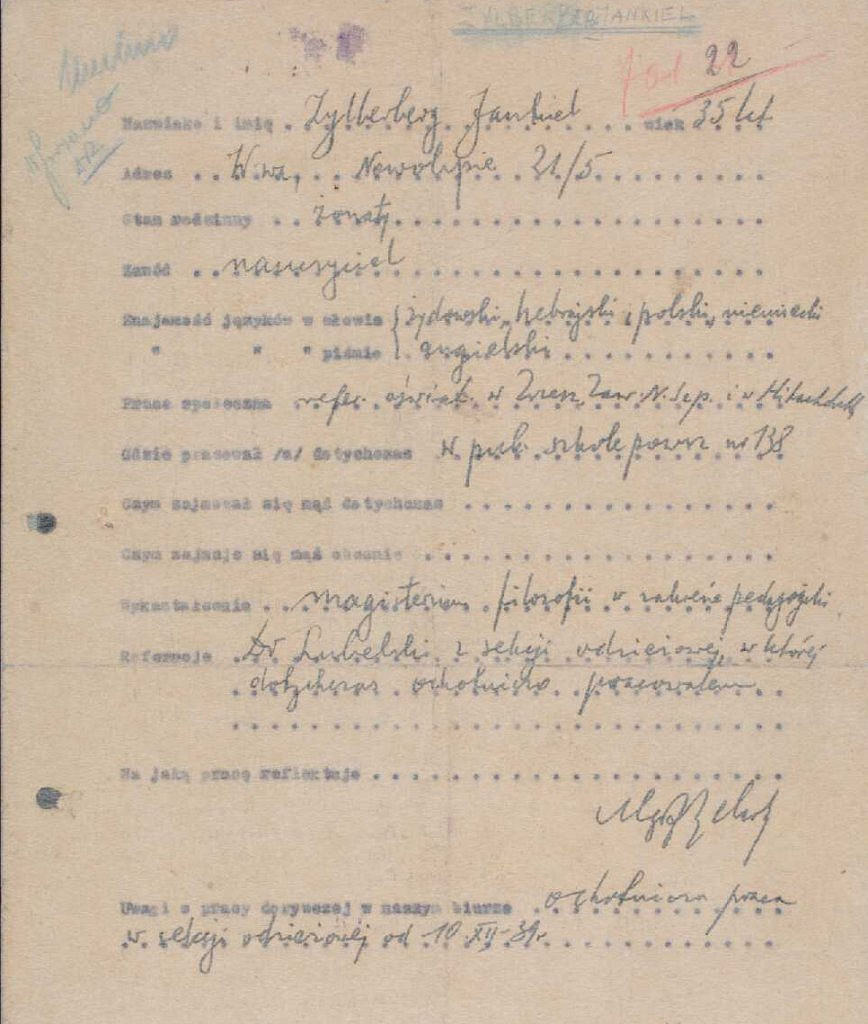 ZYLBERBERG JANKIEL
22
Nazwisko i imię . Zylberberg Jankiel wiek 35 lat
Adres . . W-wa, Nowolipie 21/5
Stan rodzinny . . żonaty
Zawód . . nauczyciel
Znajomość języków w słowie { żydowski, hebrajski, polski, niemiecki
" " " piśmie { angielski
Praca społeczna refer. oświat. w Zrzesz. Zaw. N. i w
Gdzie pracował /a/ dotychczas w pub. szkole powsz nr 138
Czym zajmował się mąż dotychczas
Czym zajmuje się mąż obecnie
Wykształcenie . . magisterium filozofii w zakresie pedagogiki
Referencje Dr Lubelski z sekcji odzieżowej, w której
dotychczas ochotniczo pracowałem
Na jaką pracę reflektuje
Mgr
Uwagi o pracy dorywczej w naszym biurze ochotnicza praca
w sekcji odzieżowej od 10 XII 39 r.